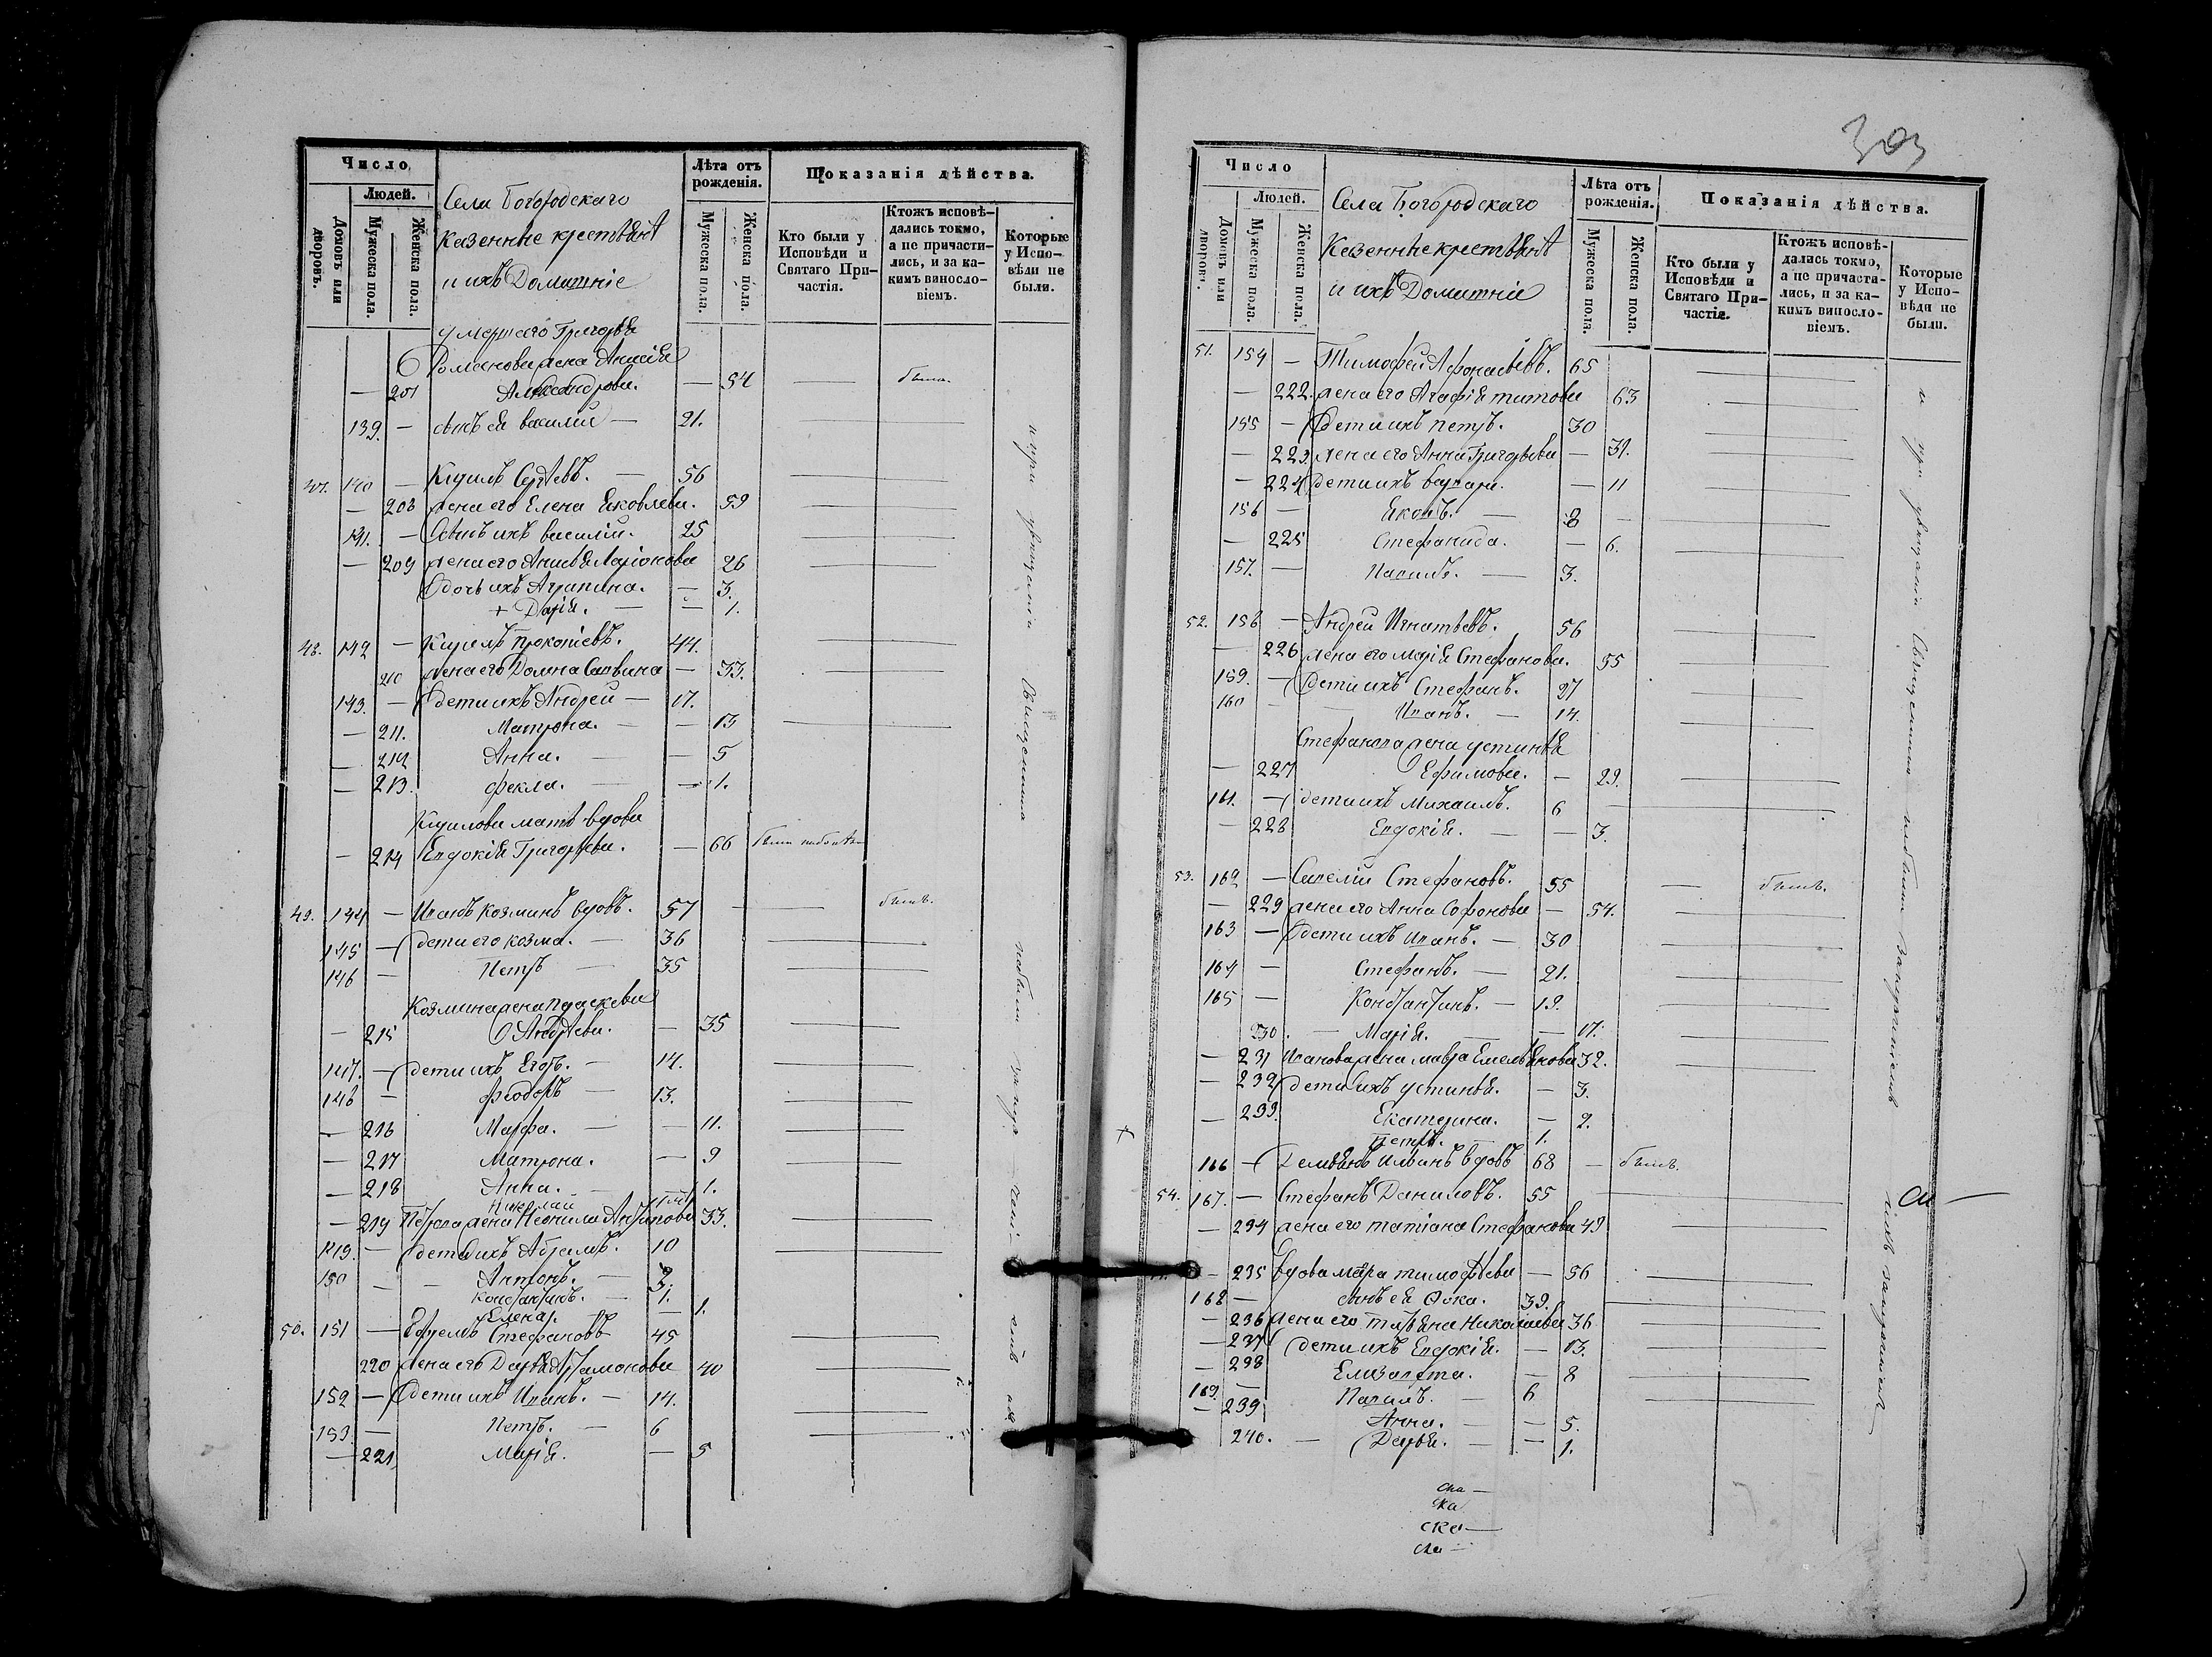 Число
Людей.
Домовъ или дворовъ.
Мужеска пола.
Женска пола.
Села Богородскаго
казенные крестьянѣ
и ихъ Домашніе
Лѣта отъ рожденія.
Мужеска пола.
Женска пола.
Показанія дѣйства.
Кто были у Исповѣди и Святаго Причастія.
Ктожъ исповѣдались токмо, а не причастились, и за какимъ винословіемъ.
Которые у Исповѣди не были.
умершаго Григорья
Романова жена Анисія
— 201 Александрова. — 54 была.
139. — сынъ ея василий — 21.
47. 140 — Кирилъ Сергѣевъ. — 56
— 208 жена его Елена Яковлева. 59
141. — Сынъ ихъ василий. 25
— 209 жена его Анисья Ларіонова 26
дочь ихъ Агрипина. — 3.
+ Дарія. — — 1.
48. 142 — Кирилъ Прокопіевъ. 44.
210 жена его Домна Саввина — 33.
143. — дети ихъ Андрей — 17.
— 211. Матрона. — — 13
— 212 Анна. — — 5
— 213. фекла. — — 1.
Кирилова мать вдова
— 214 Евдокія Григорьева. — 66
49. 144 — Иванъ козминъ вдовъ. 57 — былъ.
145 — дети его козма. — 36
146 — Петръ — 35
Козмина жена Праскева
— 215 Андрѣева. — 35
147. — дети ихъ Егоръ. — 14.
148 — феодоръ — 13.
— 216 Марфа. — — 11.
— 217 Матрона. — 9
— 218 Анна. — 1.
Николай
— 219 Петрова жена Неонила Антипова 33.
149. — дети ихъ Абрамъ. 10
150 — — Антонъ. — 3.
константинъ. — 1.
Елена. — 1.
50. 151 — Ефремъ Стефановъ 45
220 жена его Дарья Артамонова 40
152 — дети ихъ Иванъ. — 14.
153. — Петръ. — 6
— 221 Марія. — 5
303
Число
Людей.
Домовъ или дворовъ.
Мужеска пола.
Женска пола.
Села Богородскаго
Казенные крестьянѣ
и ихъ Домашніе
Лѣта отъ рожденія.
Мужеска пола.
Женска пола.
Показанія дѣйства.
Кто были у Исповѣди и Святаго Причастія.
Ктожъ исповѣдались токмо, а не причастились, и за какимъ винословіемъ.
Которые у Исповѣди не были.
51. 154 — Тимофей Афонасьевъ. 65
— 222. жена его Агафія титова 63
155 — дети ихъ петръ. 30
— 223. жена его Анна Григорьева — 31.
— 224 дети ихъ варвара. — 11
156 — Яковъ. — 8 —
— 225 Стефанида. — 6.
157. — Павилъ. — 3.
52. 158 — Андрей Игнатьевъ. 56
— 226 жена его марія Стефанова. 55
159. — дети ихъ Стефанъ. 27
160 — Иванъ. — 14.
Стефанова жена устинья
— 227 Ефимова. — 29.
161. — дети ихъ Михаилъ. 6
— 228 Евдокія. — — 3.
53. 162 — Савелій Стефановъ. 55 — былъ.
— 229 жена его Анна Софонова — 54.
163 — дети ихъ Иванъ. — 30
164 — Стефанъ. — 21.
165 — Константинъ. — 19.
230. — Марія. — — 17.
— 231 Иванова жена мавра Емельянова 32.
— 232 дети ихъ устинья. — 3.
— 233. Екатерина. — 2.
+ петръ. — 1.
166 — Демьянъ Ильинъ вдовъ 68 — былъ.
54. 167. — Стефанъ Даниловъ. 55
— 234 жена его татіана Стефанова 49
— 235 вдова мавра тимофѣева — 56
168 — сынъ ея Фока. 39.
— 236 жена его татьяна Николаева 36
— 237 дети ихъ Евдокія. — 13.
— 238 Елизавета. — 8
169. — Павилъ. — 6
— 239 Анна. — — 5.
240. — Дарья. — — 1.